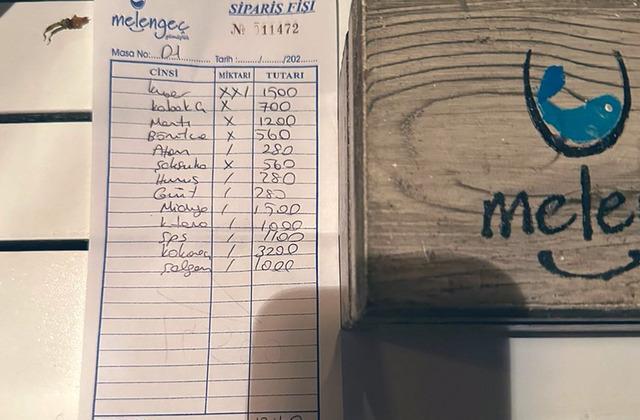 melengeç
gümüşlük
SİPARİŞ FİSİ
№ 511472
Masa No: 01 Tarih : ....../....../202....
CİNSİ MİKTARI TUTARI
XX/ 1500
kabak Ç X 700
Mantı X 1200
X 560
Atom / 280
Şakşuka X 560
Humus / 280
/ 280
Midye / 1500
/ 1000
/ 1100
kokoreç / 3200
Şalgam / 1000
mele